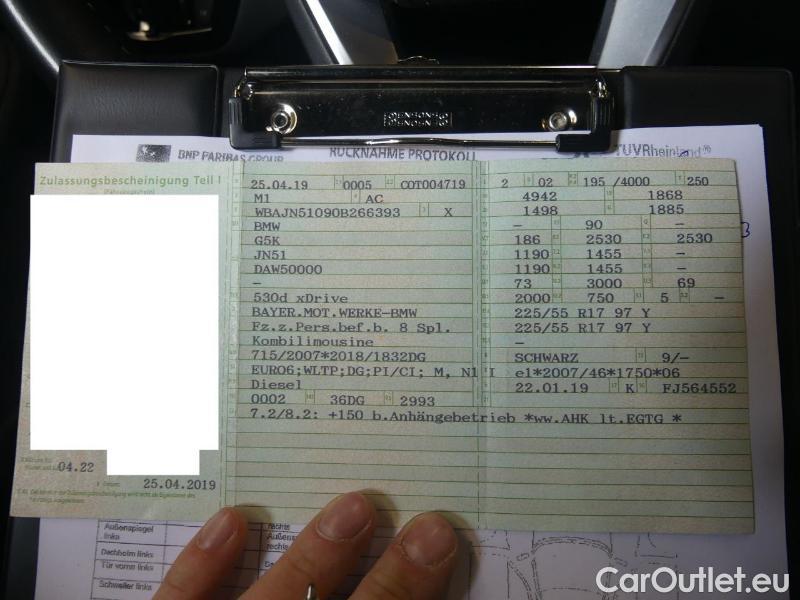 BNP PARIBAS GROUP RÜCKNAHME PROTOKOLL TÜVRheinland®
Zulassungsbescheinigung Teil I
25.04.19 0005 COT004719
M1 AC
WBAJN51090B266393 X
BMW
G5K
JN51
DAW50000
–
530d xDrive
BAYER.MOT.WERKE-BMW
Fz.z.Pers.bef.b. 8 Spl.
Kombilimousine
715/2007*2018/1832DG
EURO6;WLTP;DG;PI/CI; M, N1 I
Diesel
0002 36DG 2993
7.2/8.2: +150 b.Anhängebetrieb *ww.AHK lt.EGTG *
2 02 195 /4000 250
4942 1868
1498 1885
– 90 –
186 2530 2530
1190 1455 –
1190 1455 –
73 3000 69
2000 750 5 –
225/55 R17 97 Y
225/55 R17 97 Y
–
SCHWARZ 9/–
e1*2007/46*1750*06
22.01.19 K FJ564552
04.22
25.04.2019
Außenspiegel
links
Dachholm links
Tür vorne links
Schweller links
rechts
rechts
CarOutlet.eu